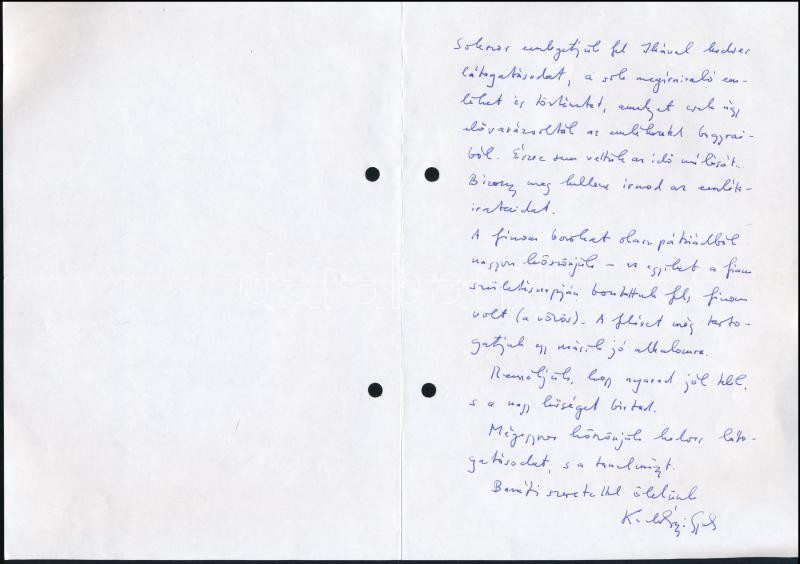 Sokszor emlegetjük fel Ikával kedves
látogatásodat, a sok megíratlan em-
léket és történetet, amelyet csak úgy
elővarázsoltál az emlékezet bugyrai-
ból. Észre sem vettük az idő múlását...
Bizony meg kellene írnod az emlék-
irataidat.
A finom borokat olasz pátriádból
nagyon köszönjük – az egyiket a fiam
születésnapján bontottuk fel, finom
volt (a vörös). A fehéret még tarto-
gatjuk egy másik jó alkalomra.
Reméljük, hogy nyarad jól telt,
s a nagy hőséget bírtad.
Mégegyszer köszönjük kedves láto-
gatásodat, s a tanulmányt.
Baráti szeretettel ölelünk